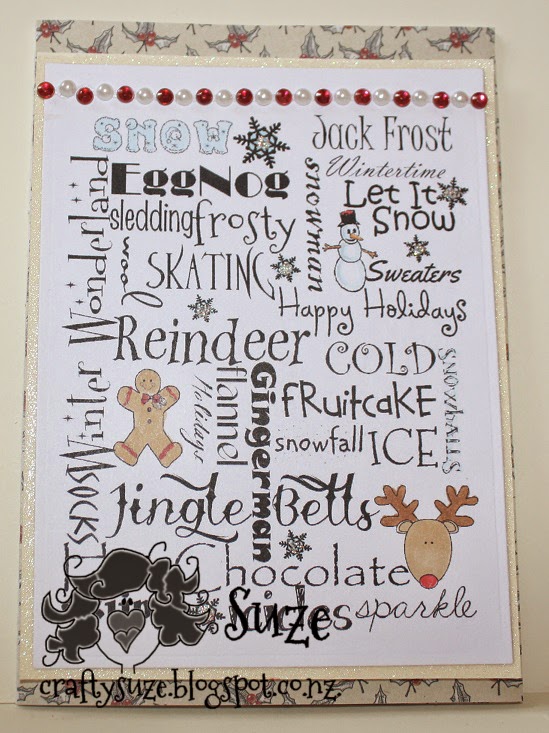 SNOW
Jack Frost
Wintertime
EggNog
Let It
Snow
snowman
sledding
frosty
wool
SKATING
Sweaters
Winter Wonderland
Happy Holidays
Reindeer
COLD
snowballs
flannel
Holidays
Gingerman
fRuitcaKE
snowfall
ICE
socks
Jingle Bells
hocolate
sparkle
Suze
craftysuze.blogspot.co.nz